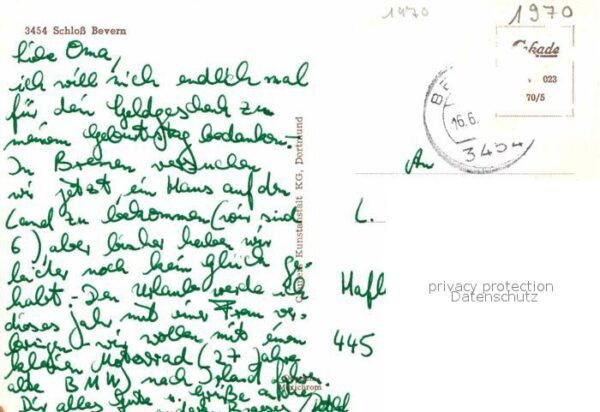 1970
1970
3454 Schloß Bevern
Liebe Oma,
ich will mich endlich mal
für dein Geldgeschenk zu
meinem Geburtstag bedanken.
In Bremen versuchen
wir jetzt ein Haus auf dem
Land zu bekommen (wir sind
6), aber bisher haben wir
leider noch kein Glück ge-
habt. Den Urlaub werde ich
dieses Jahr mit einer Frau ver-
bringen, wir wollen mit einem
kleinen Motorrad (27 Jahre
alte BMW) nach fahren.
Dir alles Gute u. Grüße
Kunstanstalt KG, Dortmund
023
70/5
16.6.
3454
An
L.
445
privacy protection
Datenschutz